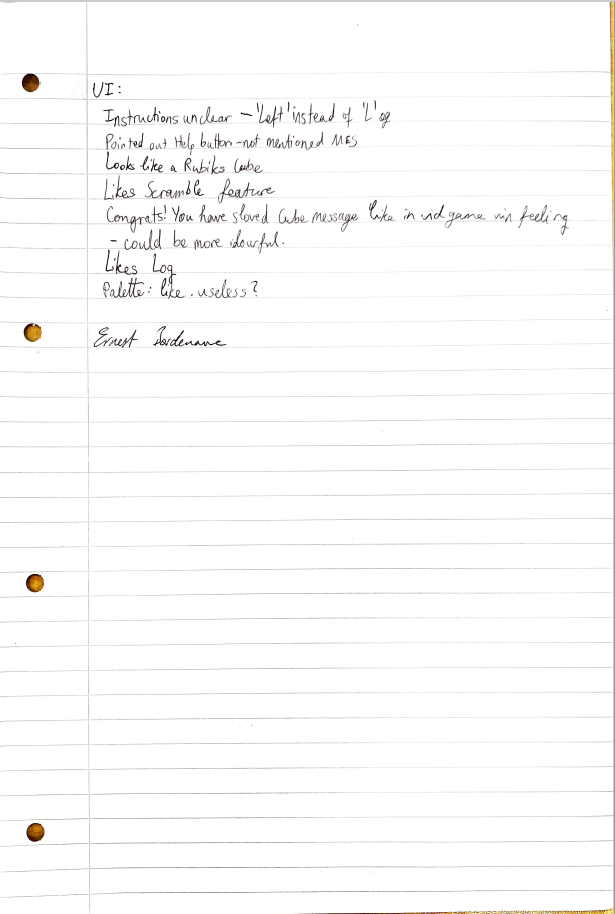 UI:
Instructions unclear - 'Left' instead of 'L' eg
Pointed out Help button - not mentioned MES
Looks like a Rubiks Cube
Likes Scramble feature
Congrats! You have sloved Cube message like in vid game win feeling
- could be more
Likes Log
Palette: like. useless?
Ernest